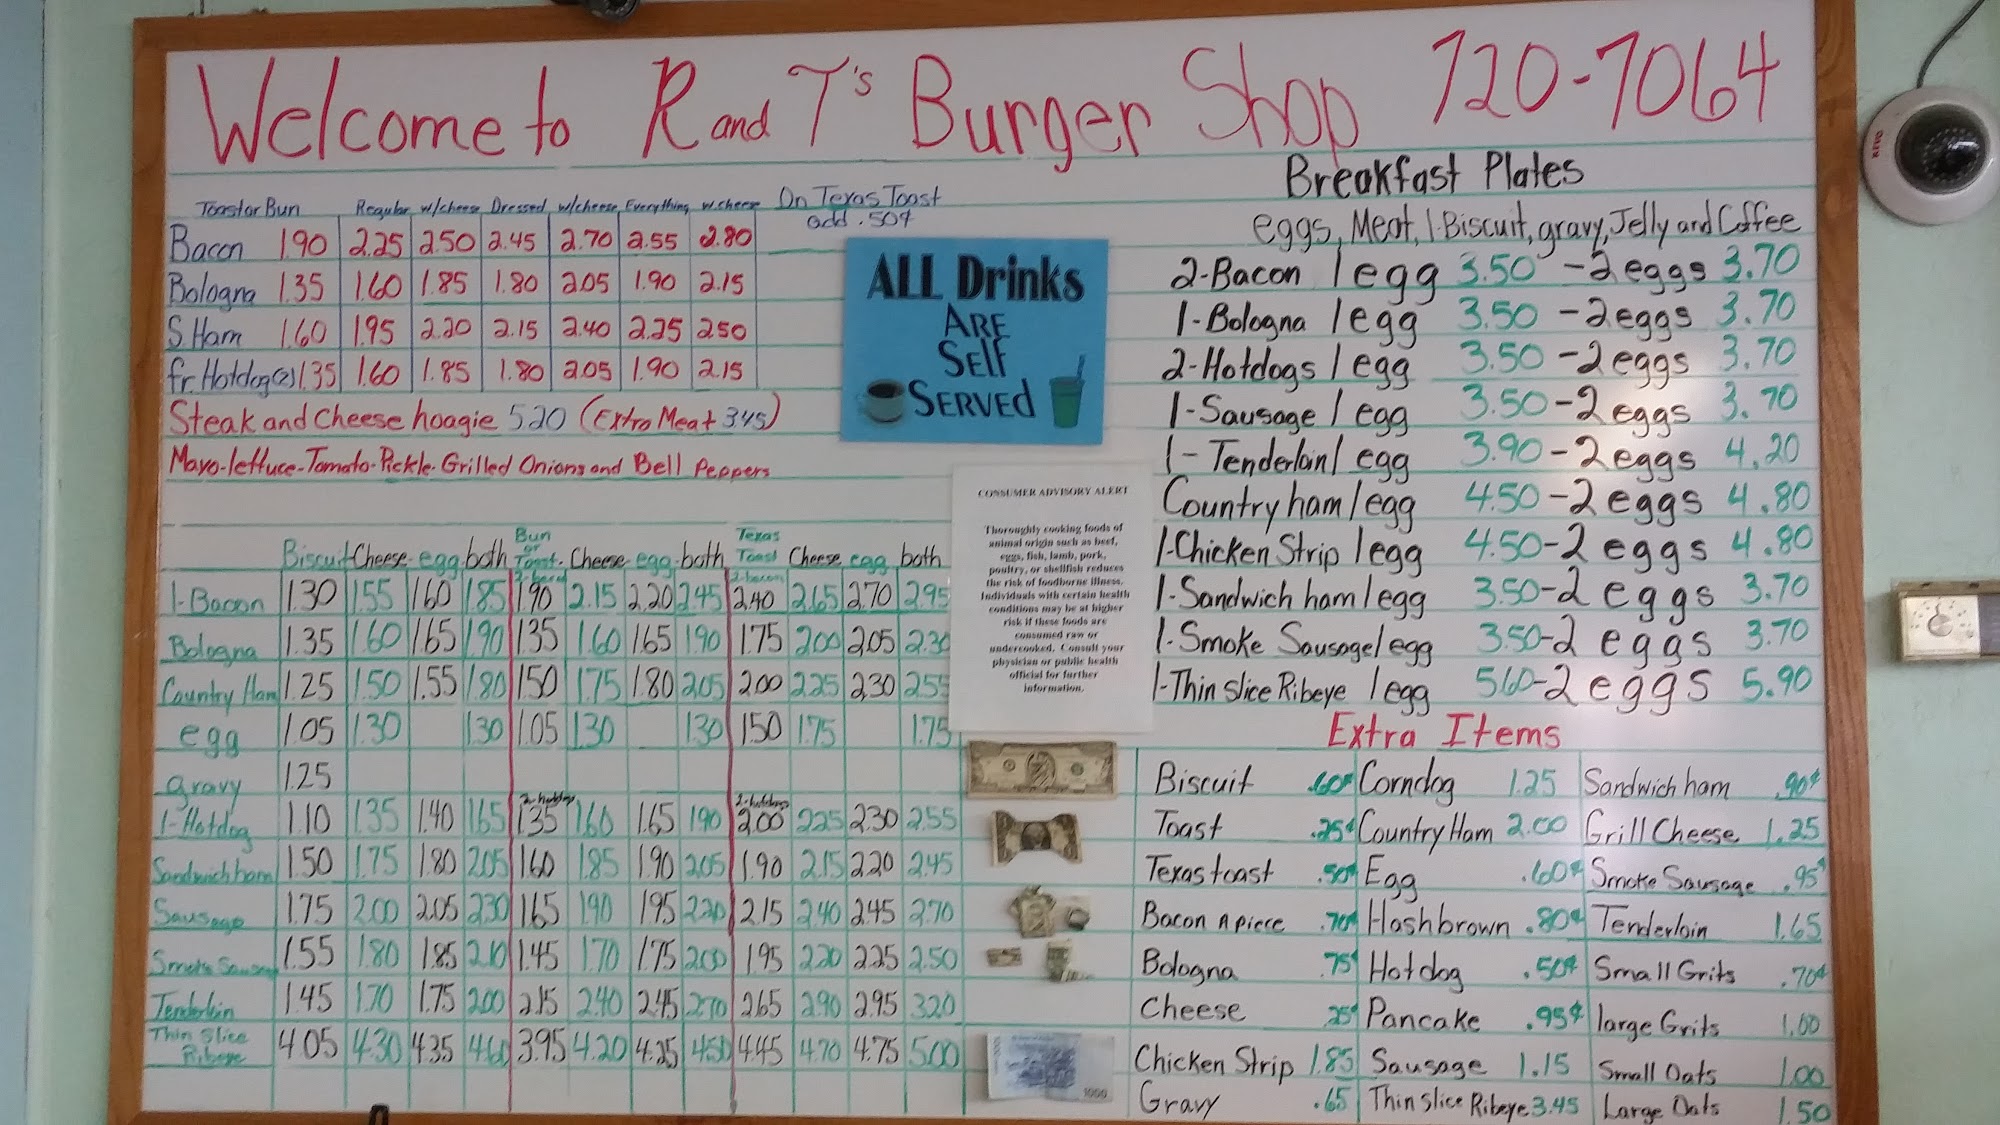 Welcome to R and T's Burger Shop 720-7064
Toast or Bun Regular w/cheese Dressed w/cheese Everything w.cheese
Bacon 1.90 2.25 2.50 2.45 2.70 2.55 2.80
Bologna 1.35 1.60 1.85 1.80 2.05 1.90 2.15
S.Ham 1.60 1.95 2.20 2.15 2.40 2.25 2.50
fr. Hotdog(2) 1.35 1.60 1.85 1.80 2.05 1.90 2.15
On Texas Toast
add .50¢
Steak and Cheese hoagie 5.20 (Extra Meat 3.45)
Mayo-lettuce-Tomato-Pickle-Grilled Onions and Bell Peppers
ALL Drinks
ARE
SELF
SERVED
CONSUMER ADVISORY ALERT
Thoroughly cooking foods of
animal origin such as beef,
eggs, fish, lamb, pork,
poultry, or shellfish reduces
the risk of foodborne illness.
Individuals with certain health
conditions may be at higher
risk if these foods are
consumed raw or
undercooked. Consult your
physician or public health
official for further
information.
Biscuit Cheese egg both Bun or Toast Cheese egg both Texas Toast Cheese egg both
2-bacon 2-bacon
1-Bacon 1.30 1.55 1.60 1.85 1.90 2.15 2.20 2.45 2.40 2.65 2.70 2.95
Bologna 1.35 1.60 1.65 1.90 1.35 1.60 1.65 1.90 1.75 2.00 2.05 2.30
Country Ham 1.25 1.50 1.55 1.80 1.50 1.75 1.80 2.05 2.00 2.25 2.30 2.55
egg 1.05 1.30 1.30 1.05 1.30 1.30 1.50 1.75 1.75
gravy 1.25
2-hotdogs 2-hotdogs
1-Hotdog 1.10 1.35 1.40 1.65 1.35 1.60 1.65 1.90 2.00 2.25 2.30 2.55
Sandwich ham 1.50 1.75 1.80 2.05 1.60 1.85 1.90 2.05 1.90 2.15 2.20 2.45
Sausage 1.75 2.00 2.05 2.30 1.65 1.90 1.95 2.20 2.15 2.40 2.45 2.70
Smoke Sausage 1.55 1.80 1.85 2.10 1.45 1.70 1.75 2.00 1.95 2.20 2.25 2.50
Tenderloin 1.45 1.70 1.75 2.00 2.15 2.40 2.45 2.70 2.65 2.90 2.95 3.20
Thin Slice Ribeye 4.05 4.30 4.35 4.60 3.95 4.20 4.25 4.50 4.45 4.70 4.75 5.00
Breakfast Plates
eggs, Meat, 1-Biscuit, gravy, Jelly and Coffee
2-Bacon 1 egg 3.50 -2 eggs 3.70
1-Bologna 1 egg 3.50 -2 eggs 3.70
2-Hotdogs 1 egg 3.50 -2 eggs 3.70
1-Sausage 1 egg 3.50 -2 eggs 3.70
1-Tenderloin 1 egg 3.90 -2 eggs 4.20
Country ham 1 egg 4.50 -2 eggs 4.80
1-Chicken Strip 1 egg 4.50 -2 eggs 4.80
1-Sandwich ham 1 egg 3.50 -2 eggs 3.70
1-Smoke Sausage 1 egg 3.50 -2 eggs 3.70
1-Thin Slice Ribeye 1 egg 5.60 -2 eggs 5.90
Extra Items
Biscuit .60¢ Corndog 1.25 Sandwich ham .90¢
Toast .25¢ Country Ham 2.00 Grill Cheese 1.25
Texas toast .50¢ Egg .60¢ Smoke Sausage .95¢
Bacon A piece .70¢ Hashbrown .80¢ Tenderloin 1.65
Bologna .75¢ Hotdog .50¢ Small Grits .70¢
Cheese .25¢ Pancake .95¢ large Grits 1.00
Chicken Strip 1.85 Sausage 1.15 Small Oats 1.00
Gravy .65 Thin Slice Ribeye 3.45 Large Oats 1.50
1000